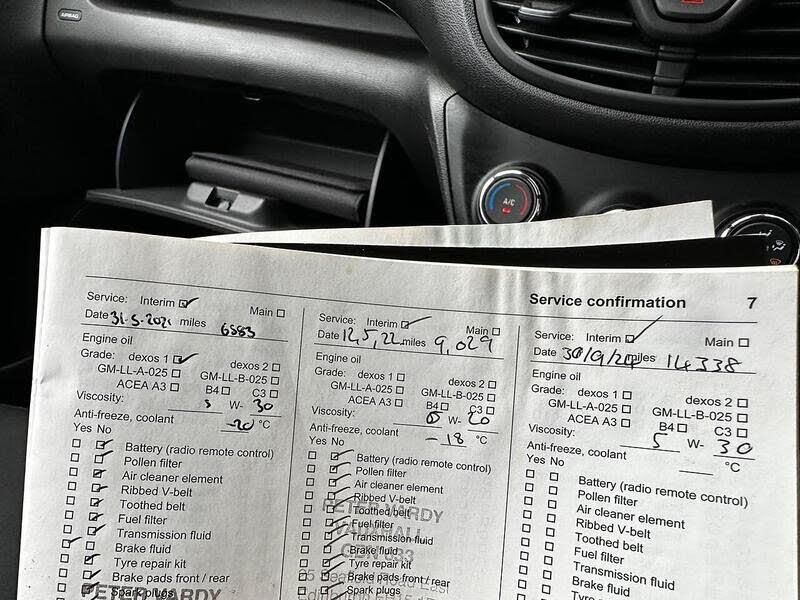 AIRBAG
A/C
Service confirmation 7
Service: Interim Main
Date 31-5-2021 miles 6583
Engine oil
Grade: dexos 1 dexos 2
GM-LL-A-025 GM-LL-B-025
ACEA A3 B4 C3
Viscosity: 5 W- 30
Anti-freeze, coolant -20 °C
Yes No
Battery (radio remote control)
Pollen filter
Air cleaner element
Ribbed V-belt
Toothed belt
Fuel filter
Transmission fluid
Brake fluid
Tyre repair kit
Brake pads front / rear
Spark plugs
PETER VARDY
Service: Interim Main
Date 12,5,22 miles 9,029
Engine oil
Grade: dexos 1 dexos 2
GM-LL-A-025 GM-LL-B-025
ACEA A3 B4 C3
Viscosity: 0 W- 20
Anti-freeze, coolant -18 °C
Yes No
Battery (radio remote control)
Pollen filter
Air cleaner element
Ribbed V-belt
Toothed belt
Fuel filter
Transmission fluid
Brake fluid
Tyre repair kit
Brake pads front / rear
Spark plugs
PETER VARDY
VAUXHALL
Service: Interim Main
Date 30/9/24 miles 14338
Engine oil
Grade: dexos 1 dexos 2
GM-LL-A-025 GM-LL-B-025
ACEA A3 B4 C3
Viscosity: 5 W- 30
Anti-freeze, coolant °C
Yes No
Battery (radio remote control)
Pollen filter
Air cleaner element
Ribbed V-belt
Toothed belt
Fuel filter
Transmission fluid
Brake fluid